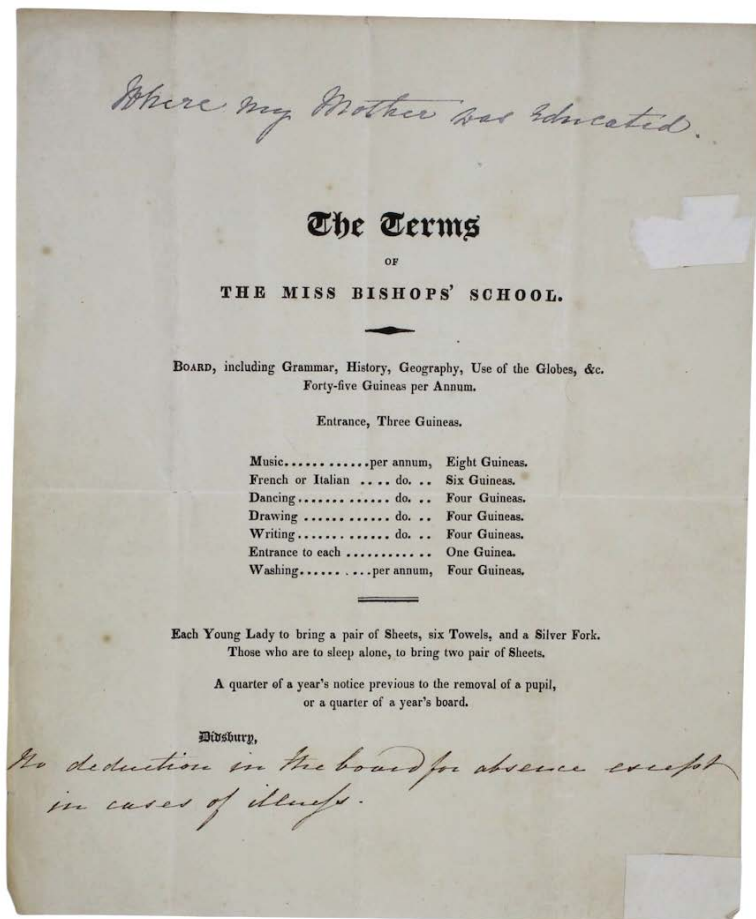 Where my Mother was Educated.
The Terms
OF
THE MISS BISHOPS' SCHOOL.
BOARD, including Grammar, History, Geography, Use of the Globes, &c.
Forty-five Guineas per Annum.
Entrance, Three Guineas.
Music............per annum, Eight Guineas.
French or Italian .... do. .. Six Guineas.
Dancing............. do. .. Four Guineas.
Drawing ............ do. .. Four Guineas.
Writing............. do. .. Four Guineas.
Entrance to each ............ One Guinea.
Washing...... ....per annum, Four Guineas.
Each Young Lady to bring a pair of Sheets, six Towels, and a Silver Fork.
Those who are to sleep alone, to bring two pair of Sheets.
A quarter of a year's notice previous to the removal of a pupil,
or a quarter of a year's board.
Didsbury,
No deduction in the board for absence except
in cases of illness.